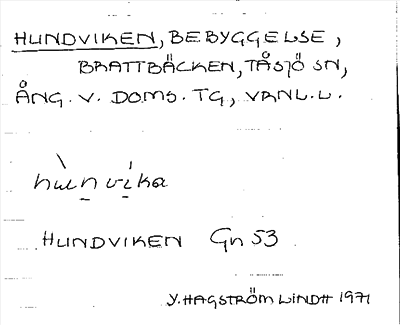 HUNDVIKEN, BEBYGGELSE,
BRATTBÄCKEN, TÅSJÖ SN,
ÅNG. V. DOMS. TG, VRNL. L.
hùn víka
HUNDVIKEN Gn 53
Y. HAGSTRÖM LINDH 1971